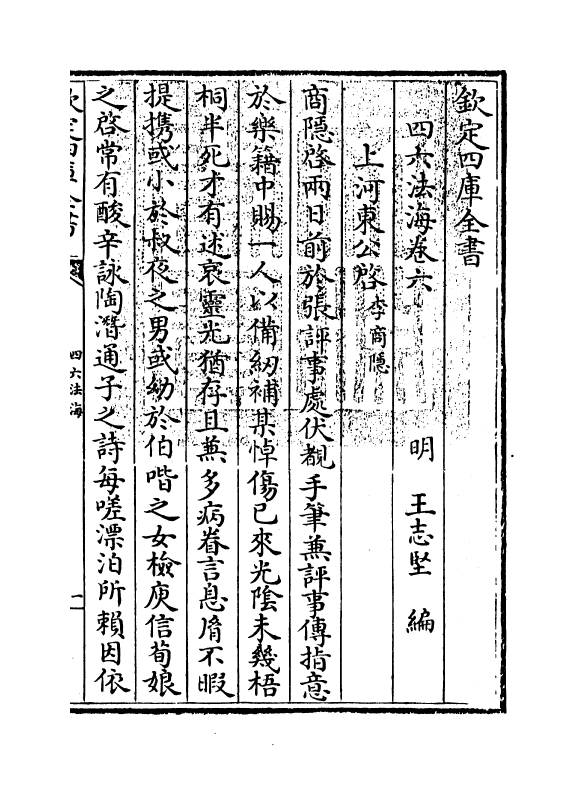 欽定四庫全書
四六法海卷六
明 王志堅 編
上河東公啓 李商隱
商隱啓兩日前於張評事處伏覩手筆兼評事傳指意
於樂籍中賜一人以備紉補某悼傷已來光陰未幾梧
桐半死才有述哀靈光猶存且兼多病眷言息𦙍不暇
提携或小於叔夜之男或幼於伯喈之女檢庾信荀娘
之啓常有酸辛詠陶潛通子之詩每嗟漂泊所賴因依
欽定四庫全書
四六法海
一